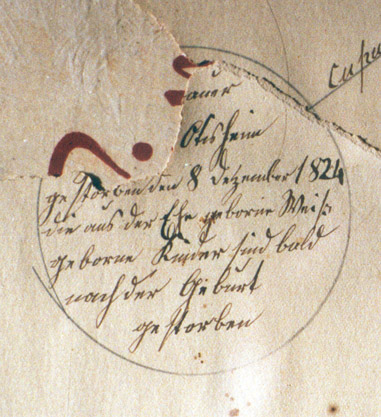 ?
auer
Ötisheim
gestorben den 8 Dezember 1824
die aus der Ehe geborne Weiß
geborne Kinder sind bald
nach der Geburt
gestorben